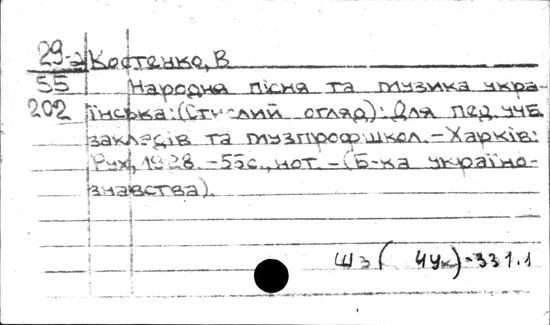 29-2 Костенко, В
55 Народня пісня та музика укра-
202 їнська: (Стислий огляд): Для пед. учб.
закладів та музпрофшкол. – Харків:
Рух, 1928. – 55с., нот. – (Б-ка україно-
знавства).
Щз(4Ук)-331.1